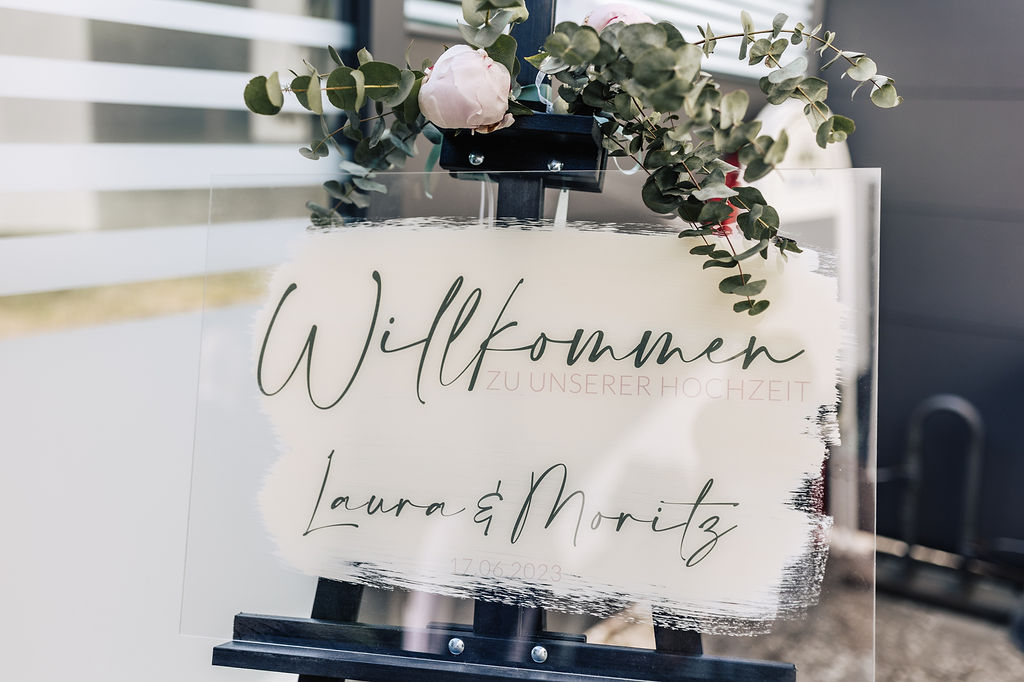 Willkommen
ZU UNSERER HOCHZEIT
Laura & Moritz
17.06.2023